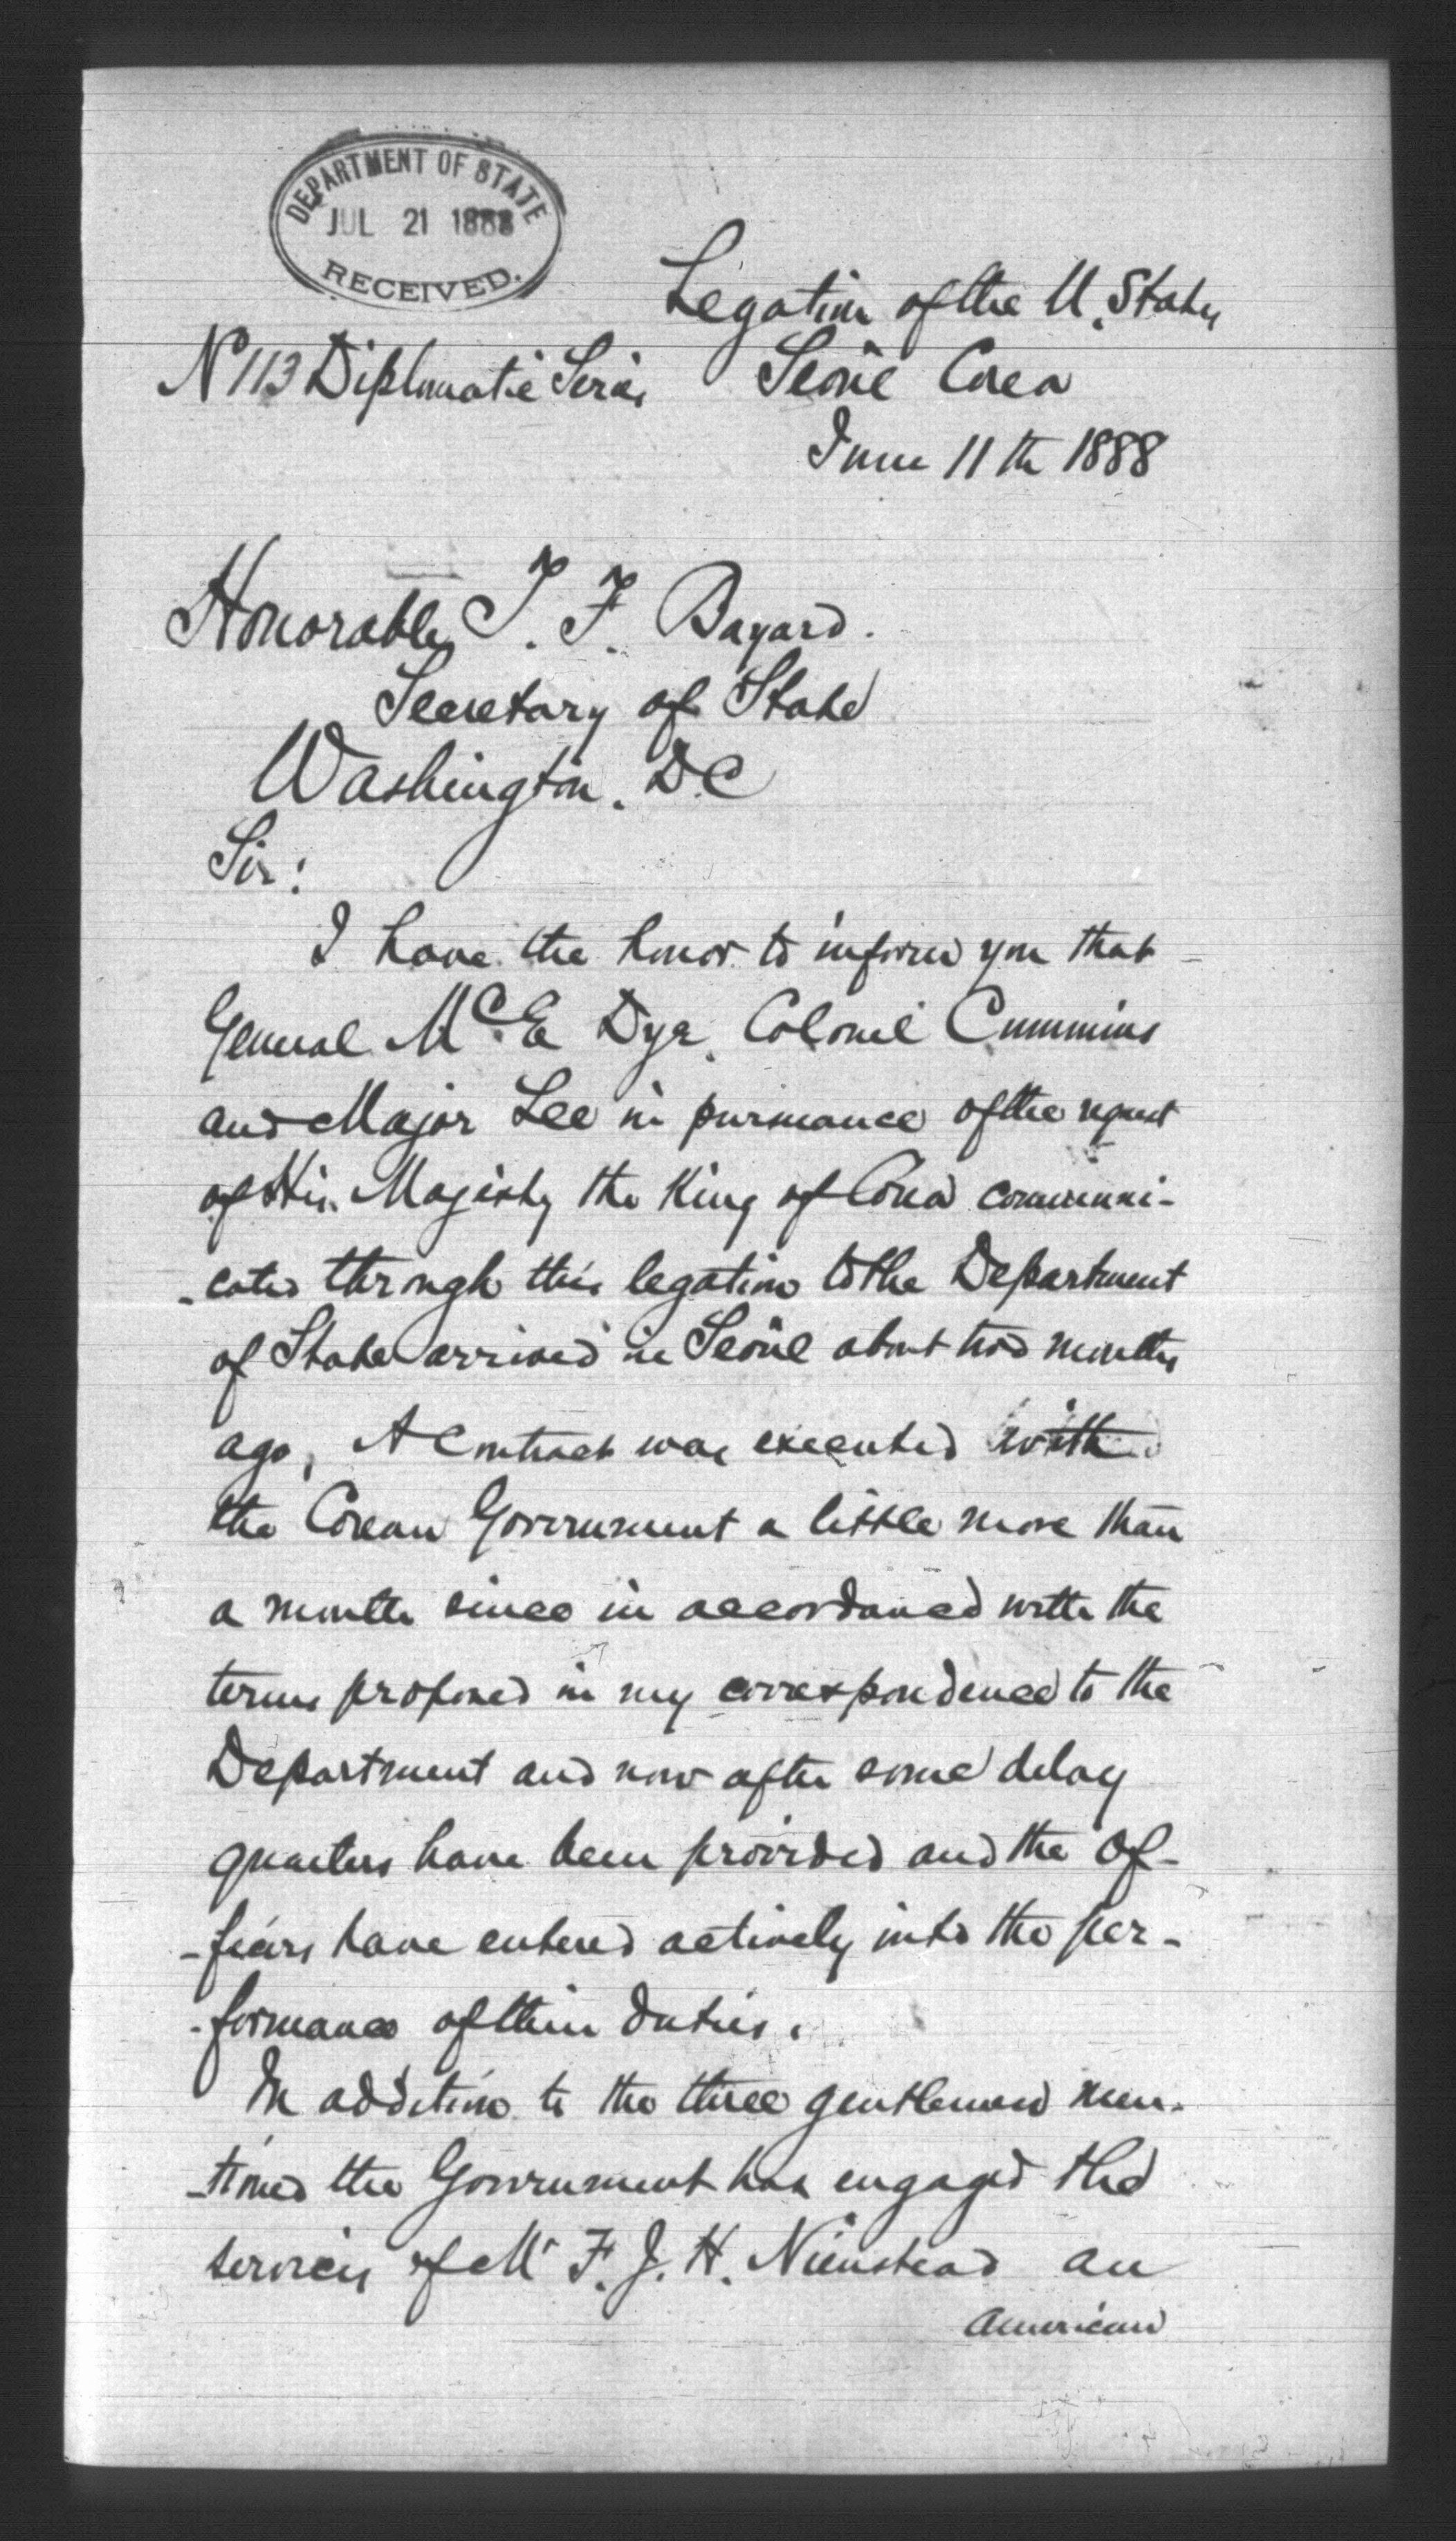 DEPARTMENT OF STATE
JUL 21 1888
RECEIVED.
Legation of the U. States
No 113 Diplomatic Series Seoul Corea
June 11th 1888
Honorable T. F. Bayard.
Secretary of State
Washington. DC
Sir:
I have the honor to inform you that
General McE Dye, Colonel Cummins
and Major Lee in pursuance of the request
of His Majesty the King of Corea communi-
-cated through this legation to the Department
of State arrived in Seoul about two months
ago, A contract was executed with
the Corean Government a little more than
a month since in accordance with the
terms proposed in my correspondence to the
Department and now after some delay
quarters have been provided and the of-
-ficers have entered actively into the per-
-formance of their duties.
In addition to the three gentlemen men-
-tioned the Government has engaged the
services of Mr F. J. H. Nienstead an
American